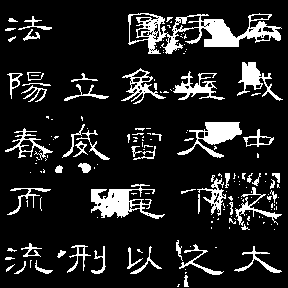 居域中之大
手握天下之
圖象雷電以
立威刑
法陽春而流